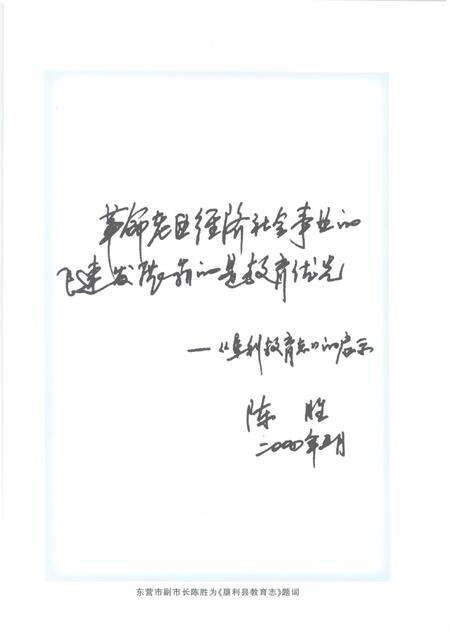 革命老区经济社会事业的
飞速发展靠的是教育优先
——《垦利教育志》的启示
陈胜
二〇〇〇年五月
东营市副市长陈胜为《垦利县教育志》题词